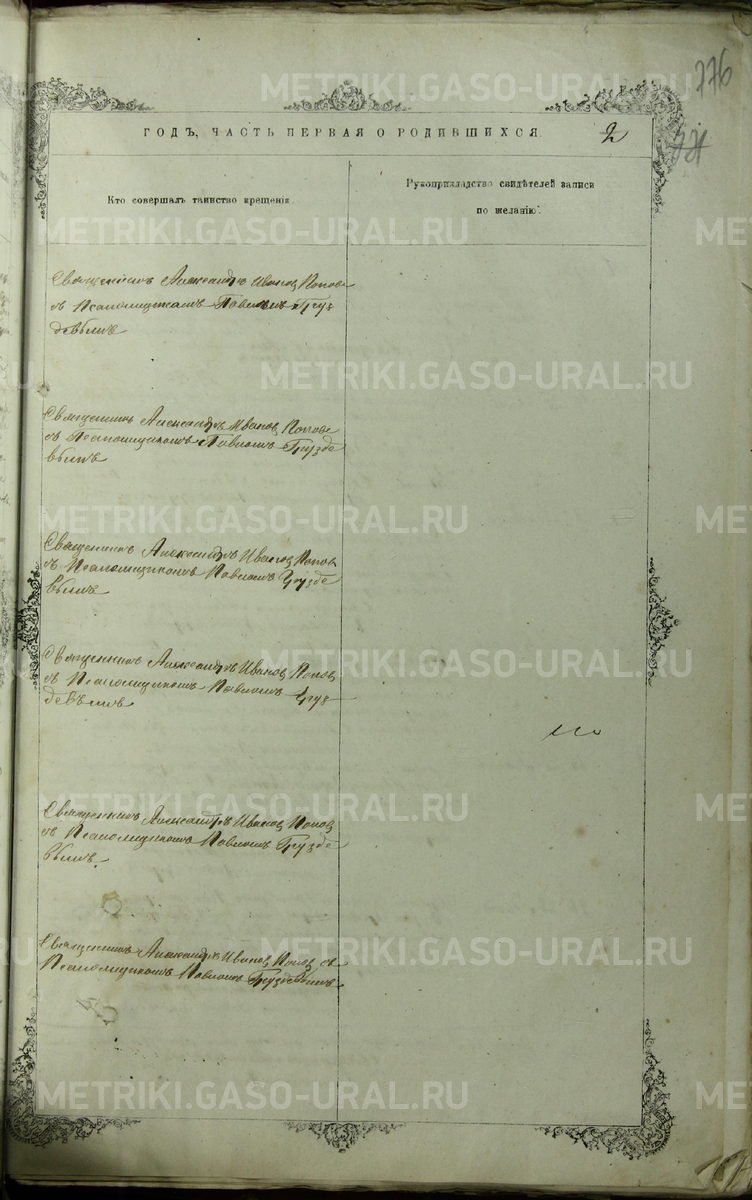 METRIKI.GASO-URAL.RU
276
ГОДЪ, ЧАСТЬ ПЕРВАЯ О РОДИВШИХСЯ. 2
Кто совершалъ таинство крещенія
Рукоприкладство свидѣтелей записи
по желанію.
METRIKI.GASO-URAL.RU
Священникъ Александръ Ивановъ Поповъ
съ Псаломщикомъ Павломъ Груз
девымъ
METRIKI.GASO-URAL.RU
Священникъ Александръ Ивановъ Поповъ
съ Псаломщикомъ Павломъ Грузде
вымъ
METRIKI.GASO-URAL.RU
Священникъ Александръ Ивановъ Поповъ
съ Псаломщикомъ Павломъ Грузде
вымъ
METRIKI.GASO-URAL.RU
Священникъ Александръ Ивановъ Поповъ
съ Псаломщикомъ Павломъ Груз
девымъ
METRIKI.GASO-URAL.RU
Священникъ Александръ Ивановъ Поповъ
съ Псаломщикомъ Павломъ Грузде
вымъ
METRIKI.GASO-URAL.RU
Священникъ Александръ Ивановъ Поповъ съ
Псаломщикомъ Павломъ Груздевымъ
METRIKI.GASO-URAL.RU